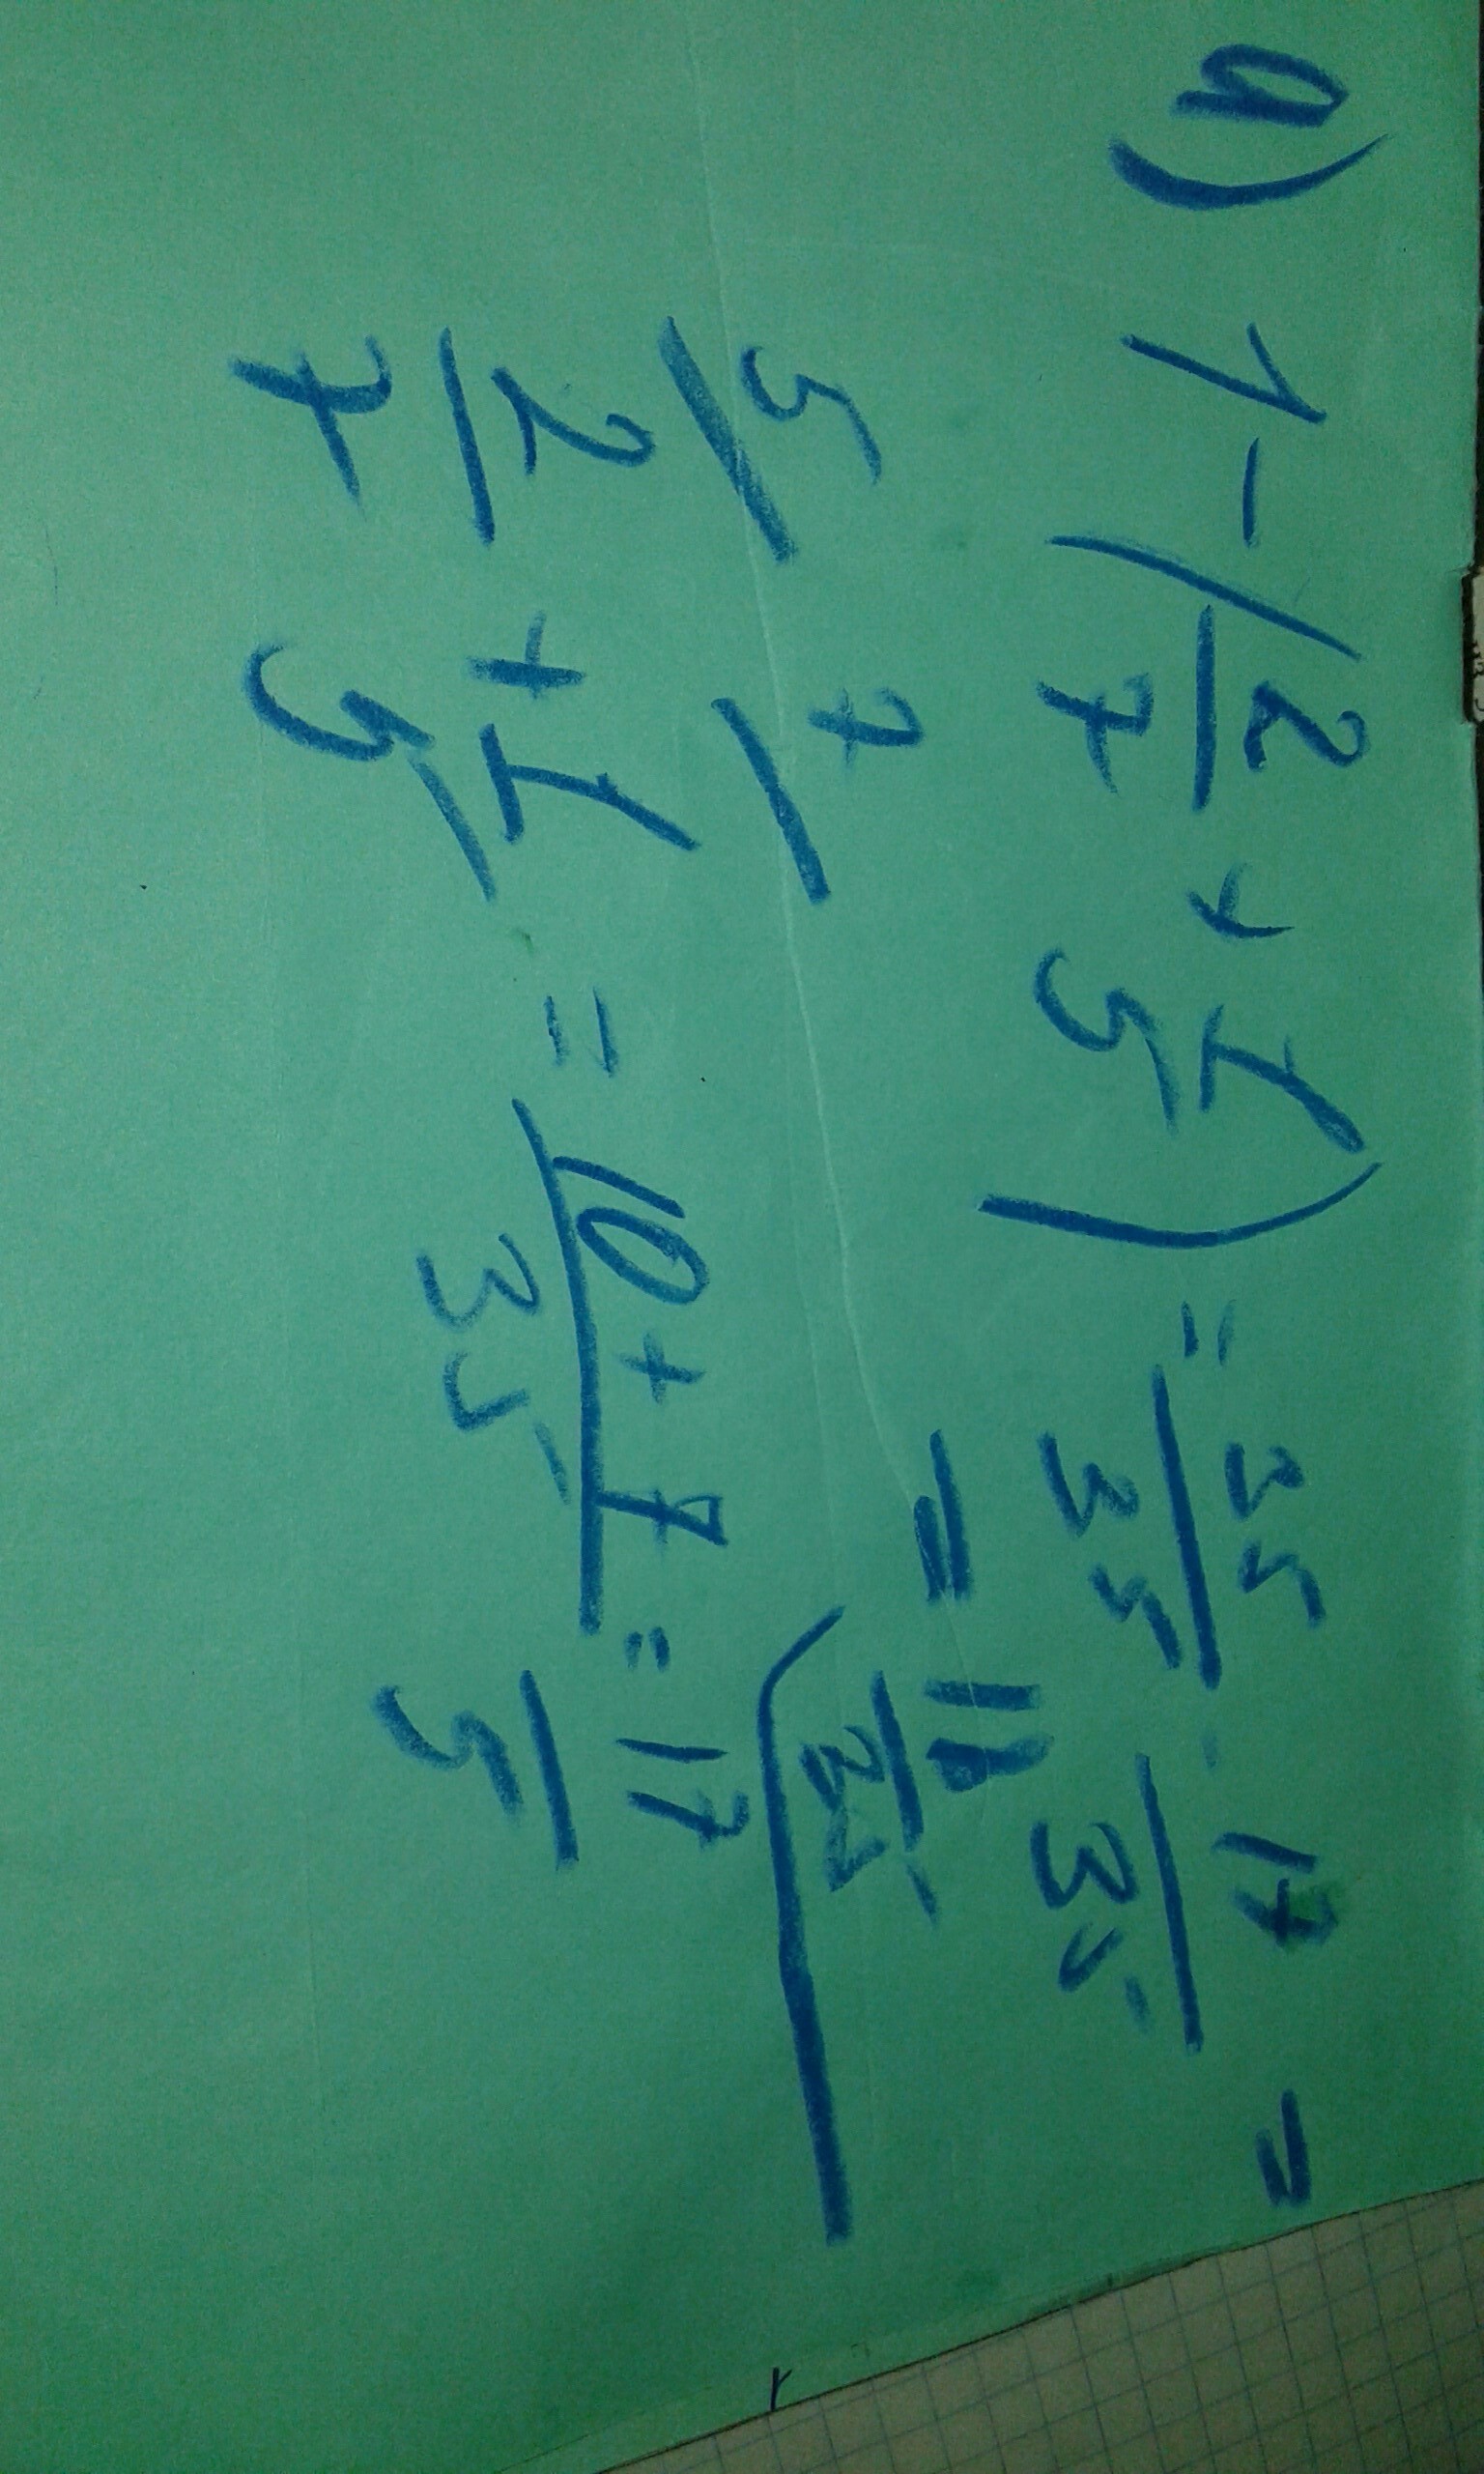 a) 1 - (2/7 + 1/5) = 35/35 - 17/35 =
= 18/35
5/ 7/
2/7 + 1/5 = 10 + 7/35 = 17/5